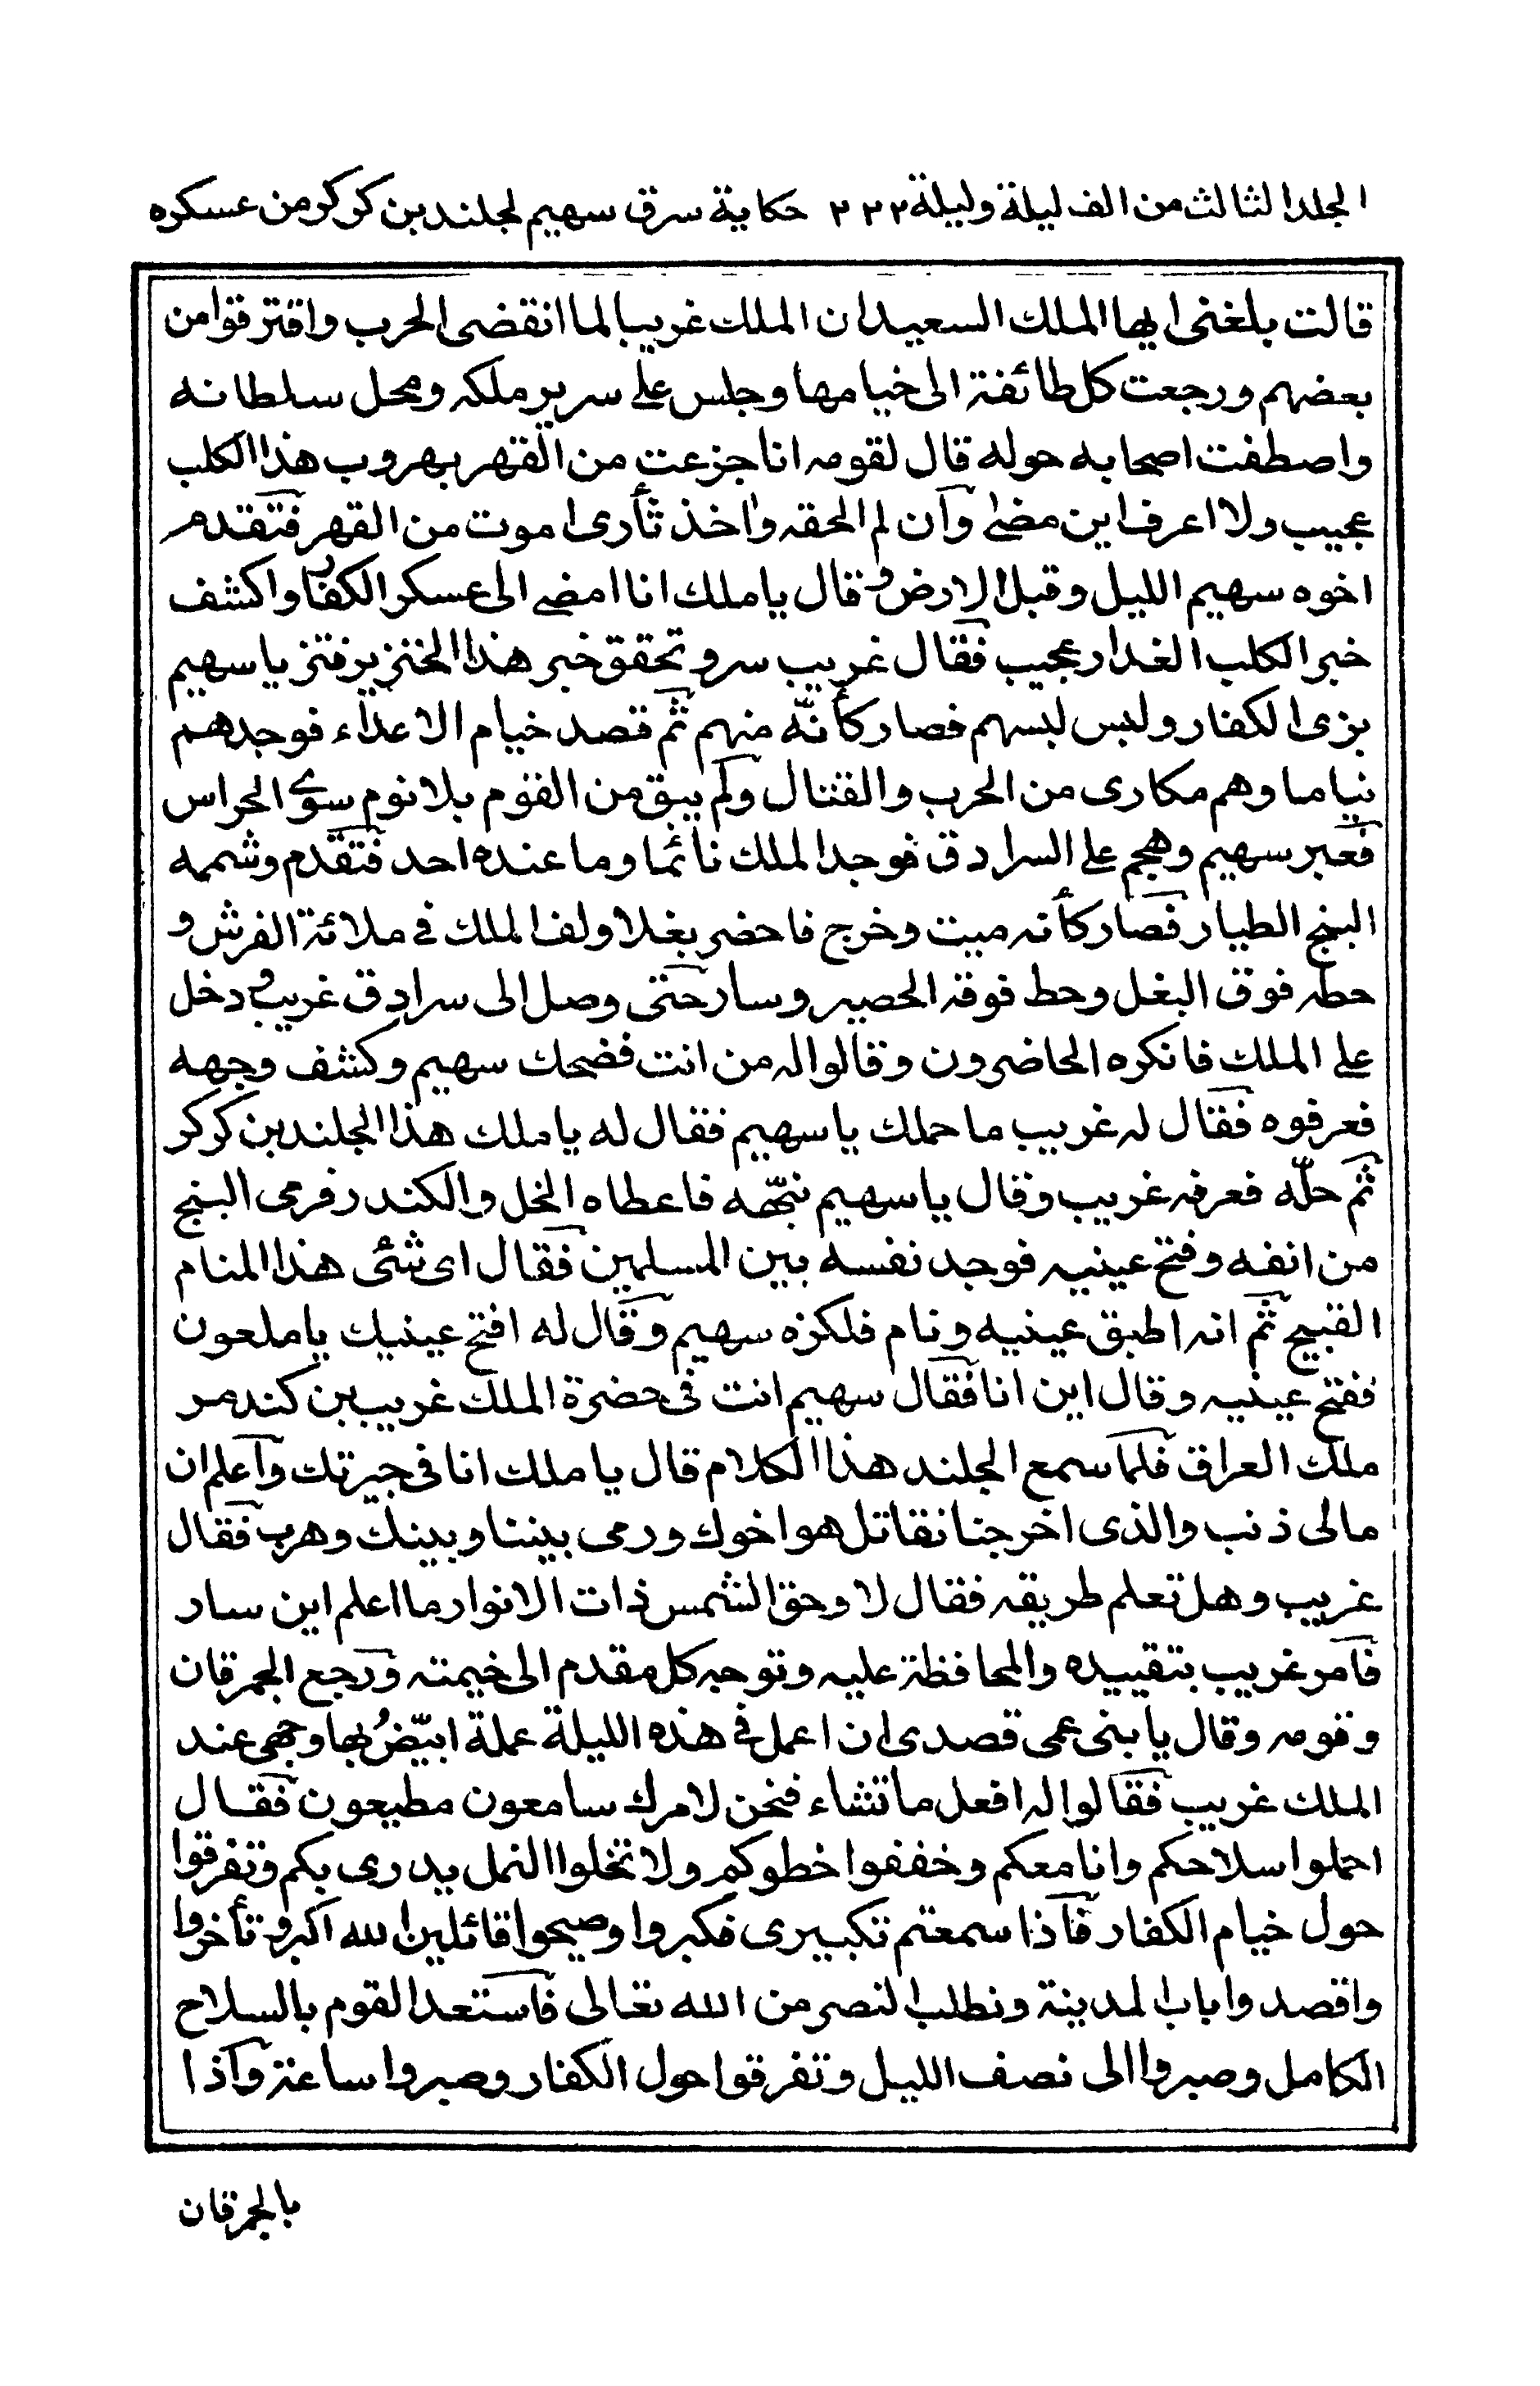 المجلد الثالث من الف ليلة وليلة ٣٣٢ حكاية سرق سهيم لجلند بن كركر من عسكره
قالت بلغنى ايها الملك السعيد ان الملك غريبا لما انقضى الحرب وافترقوا من
بعضهم ورجعت كل طائفة الى خيامها وجلس على سرير ملكه ومحل سلطانه
واصطفت اصحابه حوله قال لقومه انا جزعت من القهر بهروب هذا الكلب
عجيب ولا اعرف اين مضى وآن لم الحقه واخذ ثأرى اموت من القهر فتقدم
اخوه سهيم الليل وقبل الارض وقال يا ملك انا امضى الى عسكر الكفار واكشف
خبر الكلب الغدار عجيب فقال غريب سر وتحقق خبر هذا الخنزير فتز يا سهيم
بزى الكفار ولبس لبسهم فصار كأنّه منهم ثم قصد خيام الاعداء فوجدهم
نياما وهم مكارى من الحرب والقتال ولم يبق من القوم بلا نوم سوى الحراس
فعبر سهيم وهجم على السرادق فوجد الملك نائما وما عنده احد فتقدم وشممه
البنج الطيار فصار كأنه ميت وخرج فاحضر بغلا ولف الملك فى ملائة الفرش و
حطه فوق البغل وحط فوقه الحصير وسار حتى وصل الى سرادق غريب ودخل
على الملك فانكره الحاضرون وقالوا له من انت فضحك سهيم وكشف وجهه
فعرفوه فقال له غريب ما حملك يا سهيم فقال له يا ملك هذا الجلند بن كركر
ثم حلّه فعرفه غريب وقال يا سهيم نبّهه فاعطاه الخل والكندر فرمى البنج
من انفه وفتح عينيه فوجد نفسه بين المسلمين فقال اى شئى هذا المنام
القبيح ثم انه اطبق عينيه ونام فلكزه سهيم وقال له افتح عينيك يا ملعون
ففتح عينيه وقال اين انا فقال سهيم انت فى حضرة الملك غريب بن كندمر
ملك العراق فلما سمع الجلند هذا الكلام قال يا ملك انا فى جيرتك وآعلم ان
مالى ذنب والذى اخرجنا نقاتل هو اخوك ورمى بيننا وبينك وهرب فقال
غريب وهل تعلم طريقه فقال لا وحق الشمس ذات الانوار ما اعلم اين سار
فآمر غريب بتقييده والمحافظة عليه وتوجه كل مقدم الى خيمته ورجع الجمرقان
وقومه وقال يا بنى عمى قصدى ان اعمل فى هذه الليلة عملة ابيّضُ بها وجهى عند
الملك غريب فقالوا له افعل ما تشاء فنحن لامرك سامعون مطيعون فقال
احملوا سلاحكم وانا معكم وخففوا خطوكم ولا تخلوا النمل يدرى بكم وتفرقوا
حول خيام الكفار فآذا سمعتم تكبيرى فكبروا وصيحوا قائلين الله اكبر وتأخروا
واقصدوا باب المدينة ونطلب النصر من الله تعالى فآستعد القوم بالسلاح
الكامل وصبروا الى نصف الليل وتفرقوا حول الكفار وصبروا ساعة وآذا
بالجمرقان